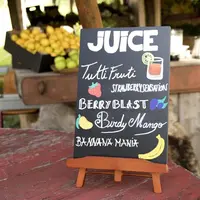 JUICE
Tutti Fruti
STRAWBERRY SENSATION
BERRY BLAST
Birdy Mango
BANNANA MANIA